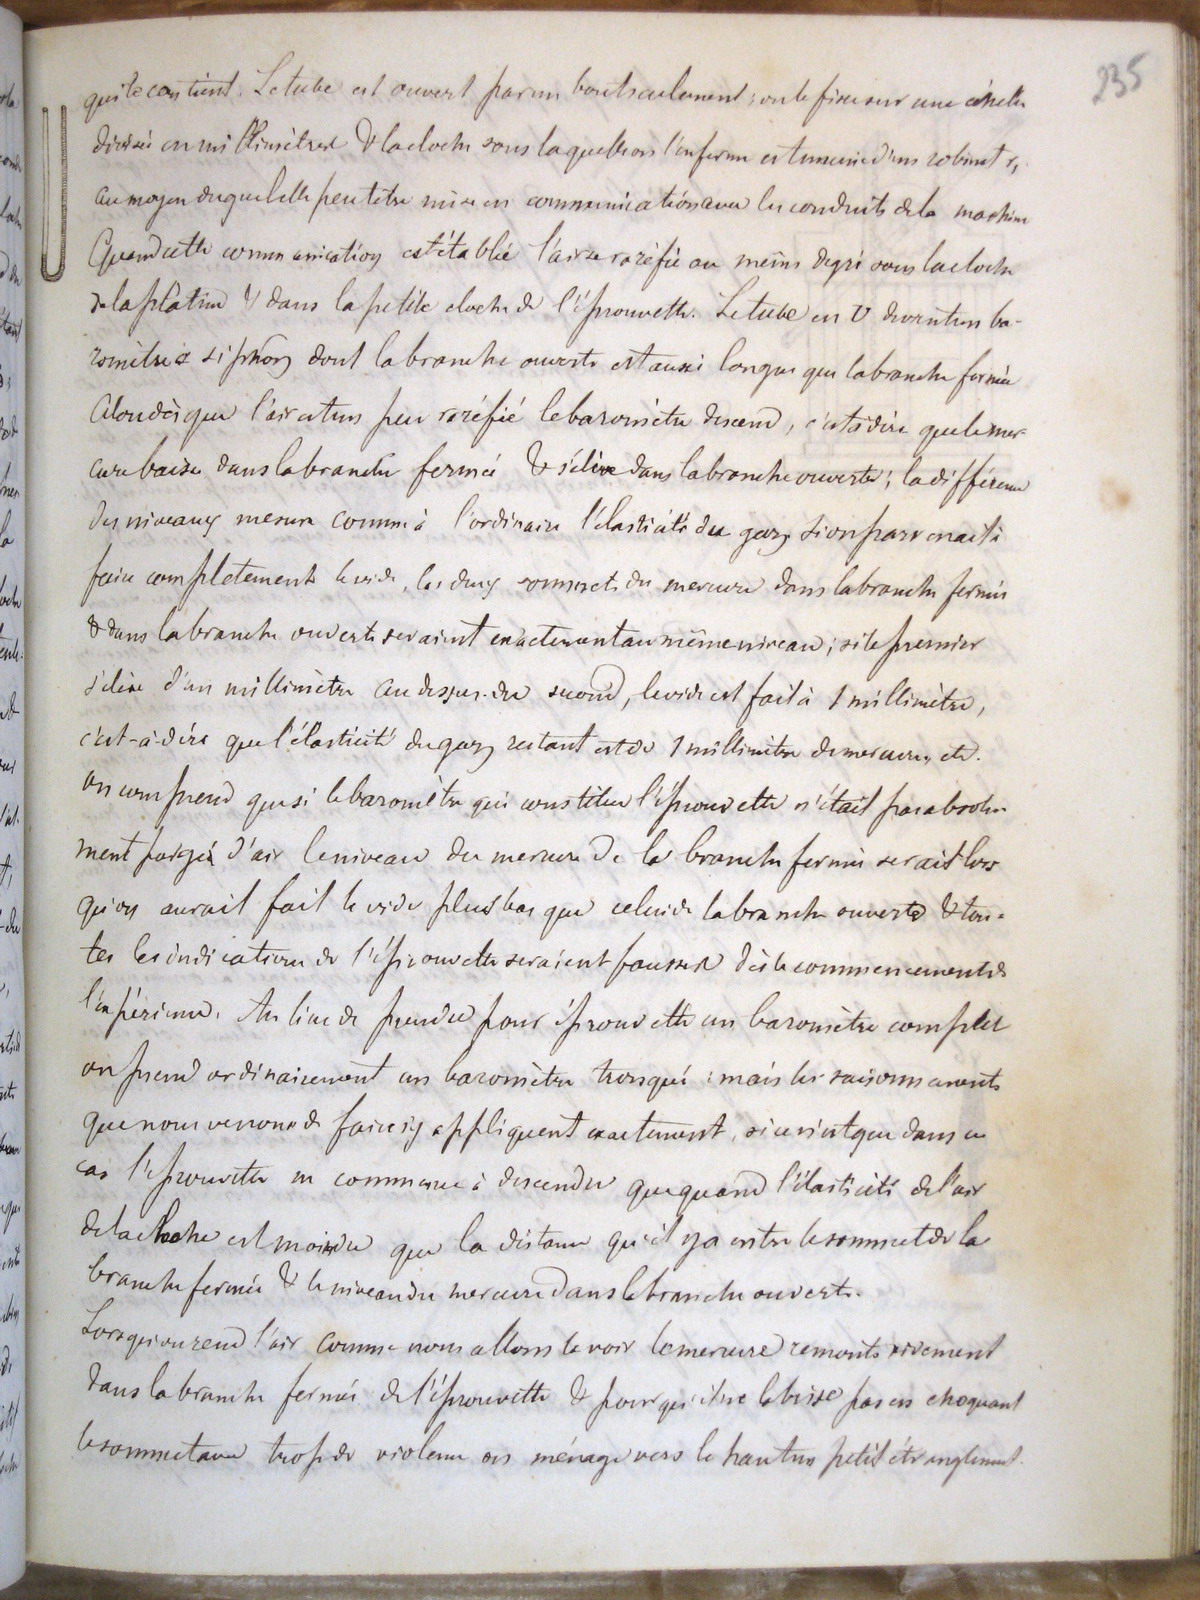 235
qui le contient. Le tube est ouvert par un bout seulement; on le fixe sur une échelle
divisée en millimètres & la cloche sous laquelle on l'enferme est munie d'un robinet r,
au moyen duquel elle peut être mise en communication avec les conduits de la machine
Quand cette communication est établie l'air se raréfie au même degré sous la cloche
de la platine & dans la petite cloche de l'éprouvette. Le tube en U devient un ba-
romètre à siphon dont la branche ouverte est aussi longue que la branche fermée
Alors dès que l'air est un peu raréfié le baromètre descend, c'est à dire que le mer
cure baisse dans la branche fermée & s'élève dans la branche ouverte; la différence
des niveaux mesure comme à l'ordinaire l'élasticité du gaz, si on parvenait à
faire complètement le vide, les deux sommets du mercure dans la branche fermée
& dans la branche ouverte seraient exactement au même niveau; si le premier
s'élève d'un millimètre au dessus du second, le vide est fait à 1 millimètre,
c'est-à-dire que l'élasticité du gaz restant est de 1 millimètre de mercure, etc.
on comprend que si le baromètre qui constitue l'éprouvette n'était pas absolu
ment purgé d'air le niveau du mercure de la branche fermée serait lors
qu'on aurait fait le vide plus bas que celui de la branche ouverte & tou-
tes les indications de l'éprouvette seraient fausses dès le commencement de
l'expérience. Au lieu de prendre pour éprouvette un baromètre complet
on prend ordinairement un baromètre tronqué: mais les raisonnements
que nous venons de faire s'y appliquent exactement, si ce n'est que dans ce
cas l'éprouvette ne commence à descendre que quand l'élasticité de l'air
de la cloche est moindre que la distance qu'il y a entre le sommet de la
branche fermée & le niveau du mercure dans la branche ouverte.
Lorsqu'on rend l'air comme nous allons le voir le mercure remonte vivement
dans la branche fermée de l'éprouvette & pour qu'il ne la brise pas en choquant
le sommet avec trop de violence on ménage vers le haut un petit étranglement.